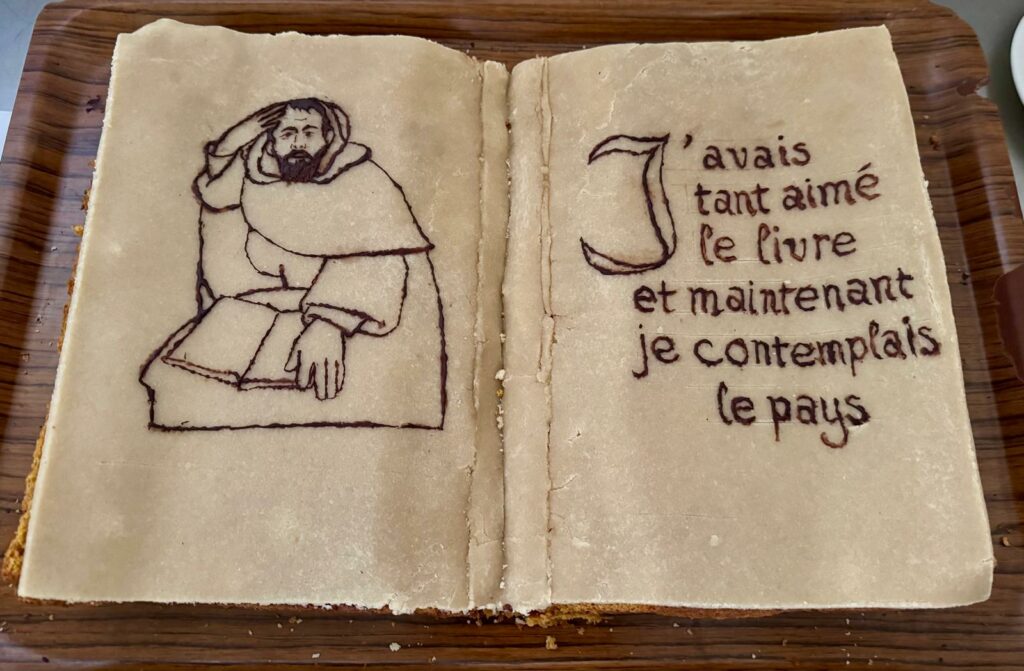 J'avais
tant aimé
le livre
et maintenant
je contemplais
le pays